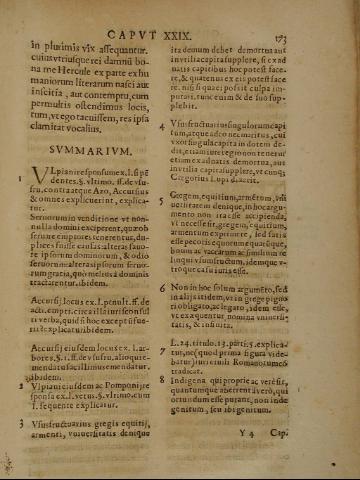 CAPVT XXIX.
173
in plurimis vix assequantur.
cuius vtriusque rei damnũ bo-
na me Hercule ex parte ex hu
maniorum literarum nasci aut
inscitia, aut contemptu, cum
permultis ostendimus locis,
tum, vt ego tacuissem, res ipsa
clamitat vocalius.
SVMMARIVM.
1 VLpiani responsum ex. l. si pẽ
dentes. §. vltimo. ff. de vsu-
fru. contra atque Azo, Accursius
& omnes explicuerint, explica-
tur.
Seruorum in venditione vt non-
nulla domini exciperent, quæ ob
seruare emptores tenerentur, du-
plices fuisse causas: alteras fauo-
re ipsorum dominorum, & odio
seruorum: alteras ipsorum seruo-
rum gratia, quo melius à dominis
tractarentur. ibidem.
Accursij locus ex. l. penult. ff. de
act. empti. circa illa iurisconsul
ti verba, quòd hoc exceptũ fue-
rit: explicatur ibidem.
Accursij eiusdem locus ex. l. ar-
bores, §. 1. ff. de vsufru, alioqui e-
mendatus facillimus emendatur,
ibidem.
2 Vlpiani eiusdem ac Pomponij re
sponsa ex. l. vetus. §. vltimo. cum
l. sequente explicatur.
3 Vsusfructuarius gregis equitij,
armenti, vniuersitatis denique
ita demum debet demortua aut
invtilia capita supplere, si ex ad
natis capitibus hoc potest face-
re, & quatenus ex eis potest face
re. nisi si quæ si possit culpa im-
putari. tunc enim & de suo sup-
plebit.
4 Vsusfructuarius singulorum capi
tum, atque adeo nec maritus, cui
vxor singula capita in dotem de-
dit, etiam iure regio non tenetur
etiam ex adnatis demortua, aut
invtilia capita supplere, vt cunque
Gregorius Lupi dixerit.
5 Gregem, equitium, armẽtum, vni
uersitatem denique, in hoc argu-
mento non ita esse accipienda,
vt necesse sit, gregem, equitium,
armentum exprimere, sed satis
esse pecotis equorum ue quàr
boum ac vaccarum ac similium re
linqui vsumfructum, idem que v-
troque casu iuris esse.
6 Non in hoc solum argumẽto, sed
in alijs itidem, vt in grege pigno
ri obligato, ac legato, idem esse,
vt ex æquentur, nomina vniuersi-
tatis, & infinita.
7 L. 24. titulo. 13. parti. 5. explica-
tur, ne (quod prima figura vide-
batur) iuri ciuili Romanorum cõ-
tradicat.
8 Indigena qui propriè ac verè sit,
quantumque aberrent à vero, qui
ortundum esse putant, non inde
genitum, seu ibi genitum.
Y 4 Cap.